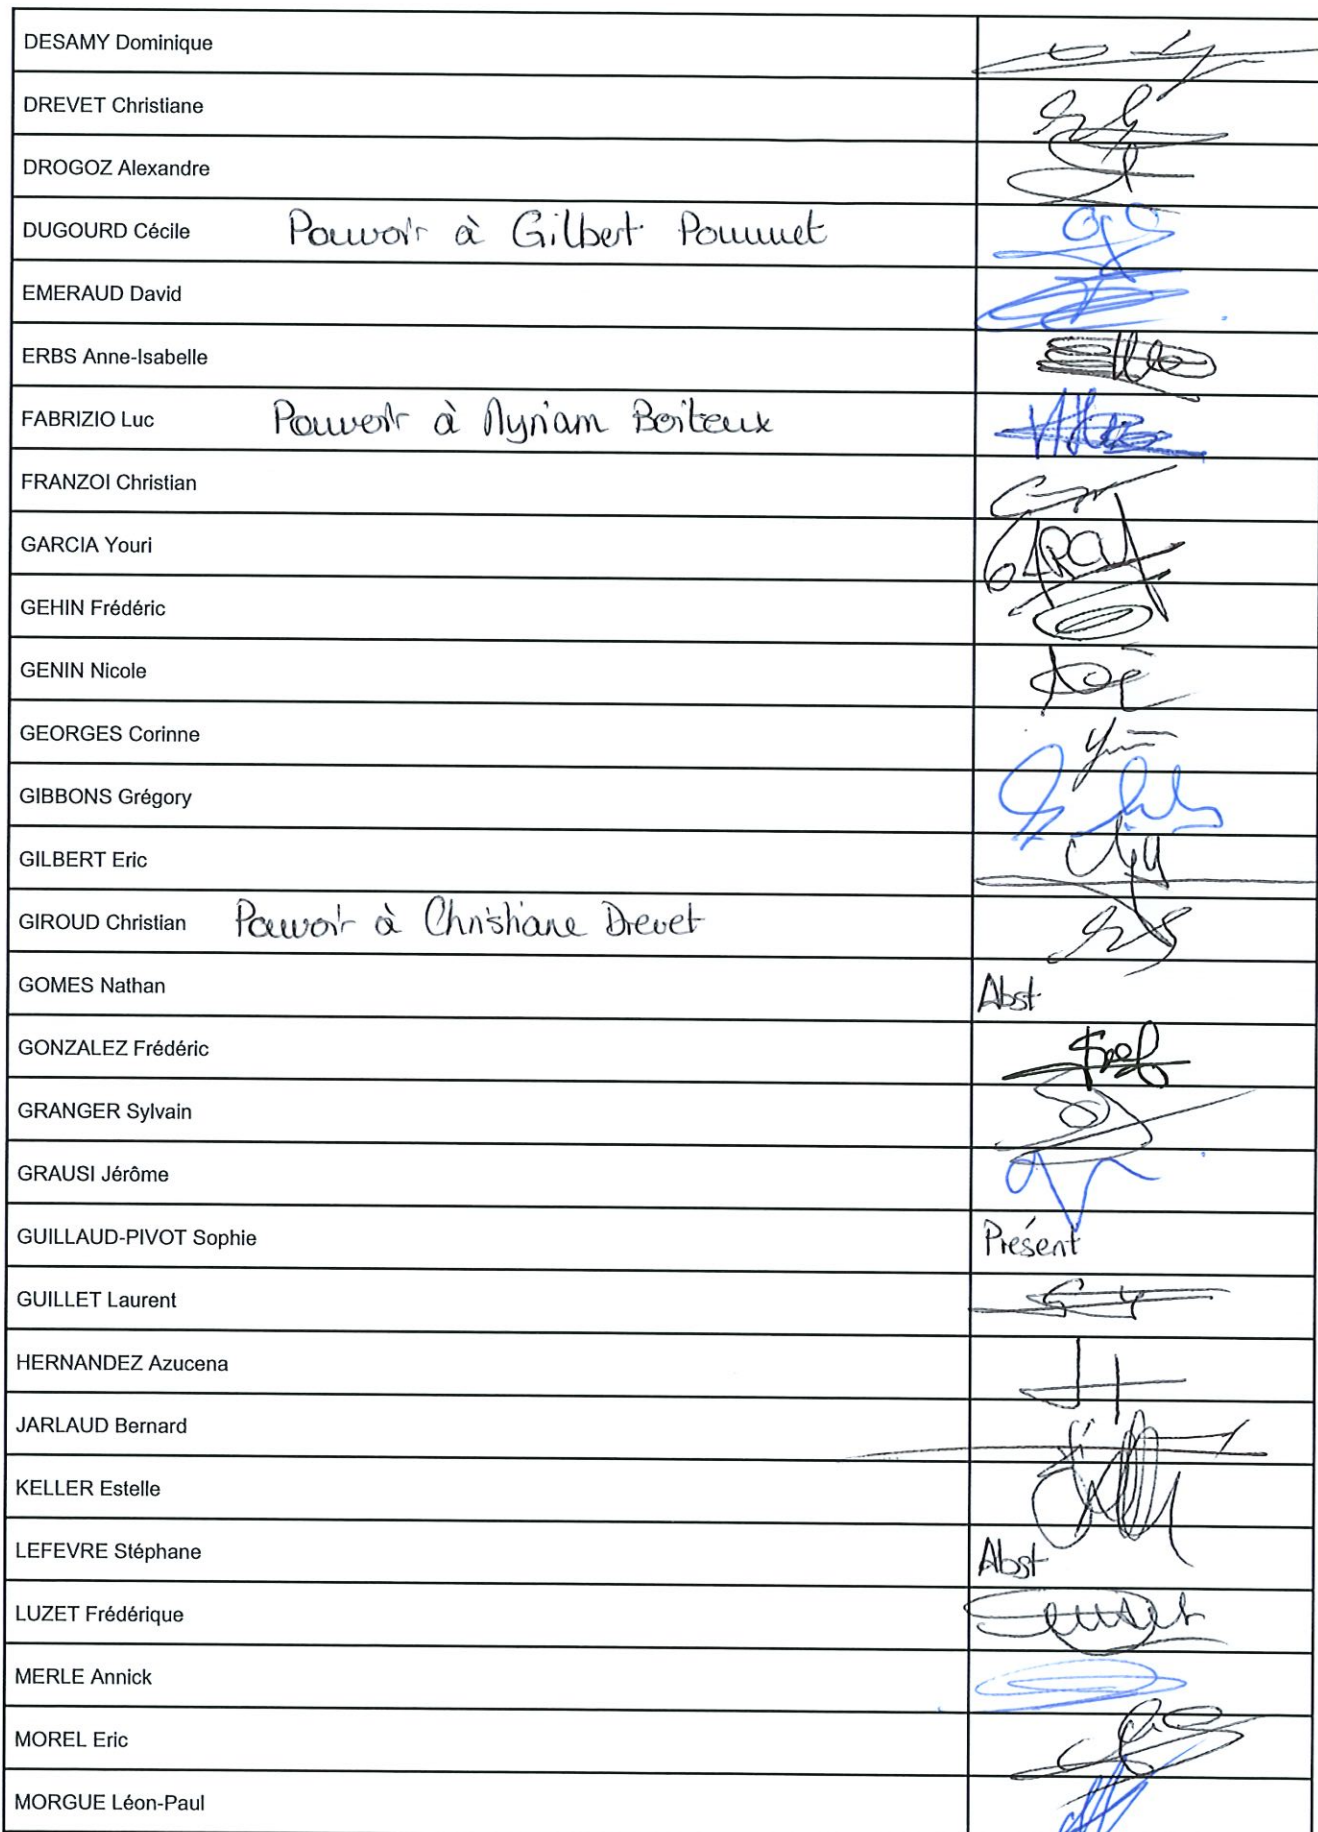 DESAMY Dominique
DREVET Christiane
DROGOZ Alexandre
DUGOURD Cécile Pouvoir à Gilbert Pommet
EMERAUD David
ERBS Anne-Isabelle
FABRIZIO Luc Pouvoir à Myriam Boiteux
FRANZOI Christian
GARCIA Youri GARCIA
GEHIN Frédéric
GENIN Nicole
GEORGES Corinne
GIBBONS Grégory
GILBERT Eric
GIROUD Christian Pouvoir à Christiane Drevet
GOMES Nathan Abst
GONZALEZ Frédéric
GRANGER Sylvain
GRAUSI Jérôme
GUILLAUD-PIVOT Sophie Présent
GUILLET Laurent
HERNANDEZ Azucena
JARLAUD Bernard
KELLER Estelle
LEFEVRE Stéphane Abst
LUZET Frédérique
MERLE Annick
MOREL Eric
MORGUE Léon-Paul